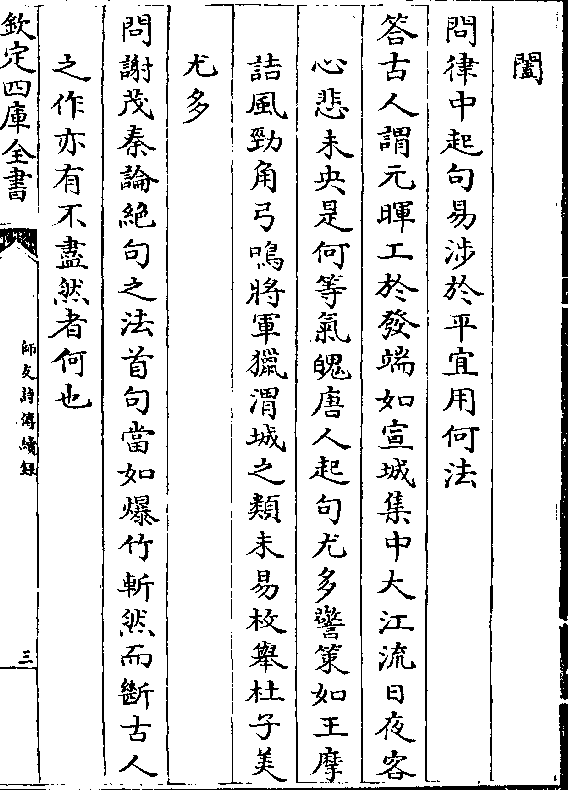 闔
問律中起句易涉於平宜用何法
答古人謂元暉工於發端如宣城集中大江流日夜客
心悲未央是何等氣魄唐人起句尤多警策如王摩
詰風勁角弓鳴將軍獵渭城之類未易枚舉杜子美
尤多
問謝茂秦論絶句之法首句當如爆竹斬然而斷古人
之作亦有不盡然者何也
欽定四庫全書
師友詩傳續録
三